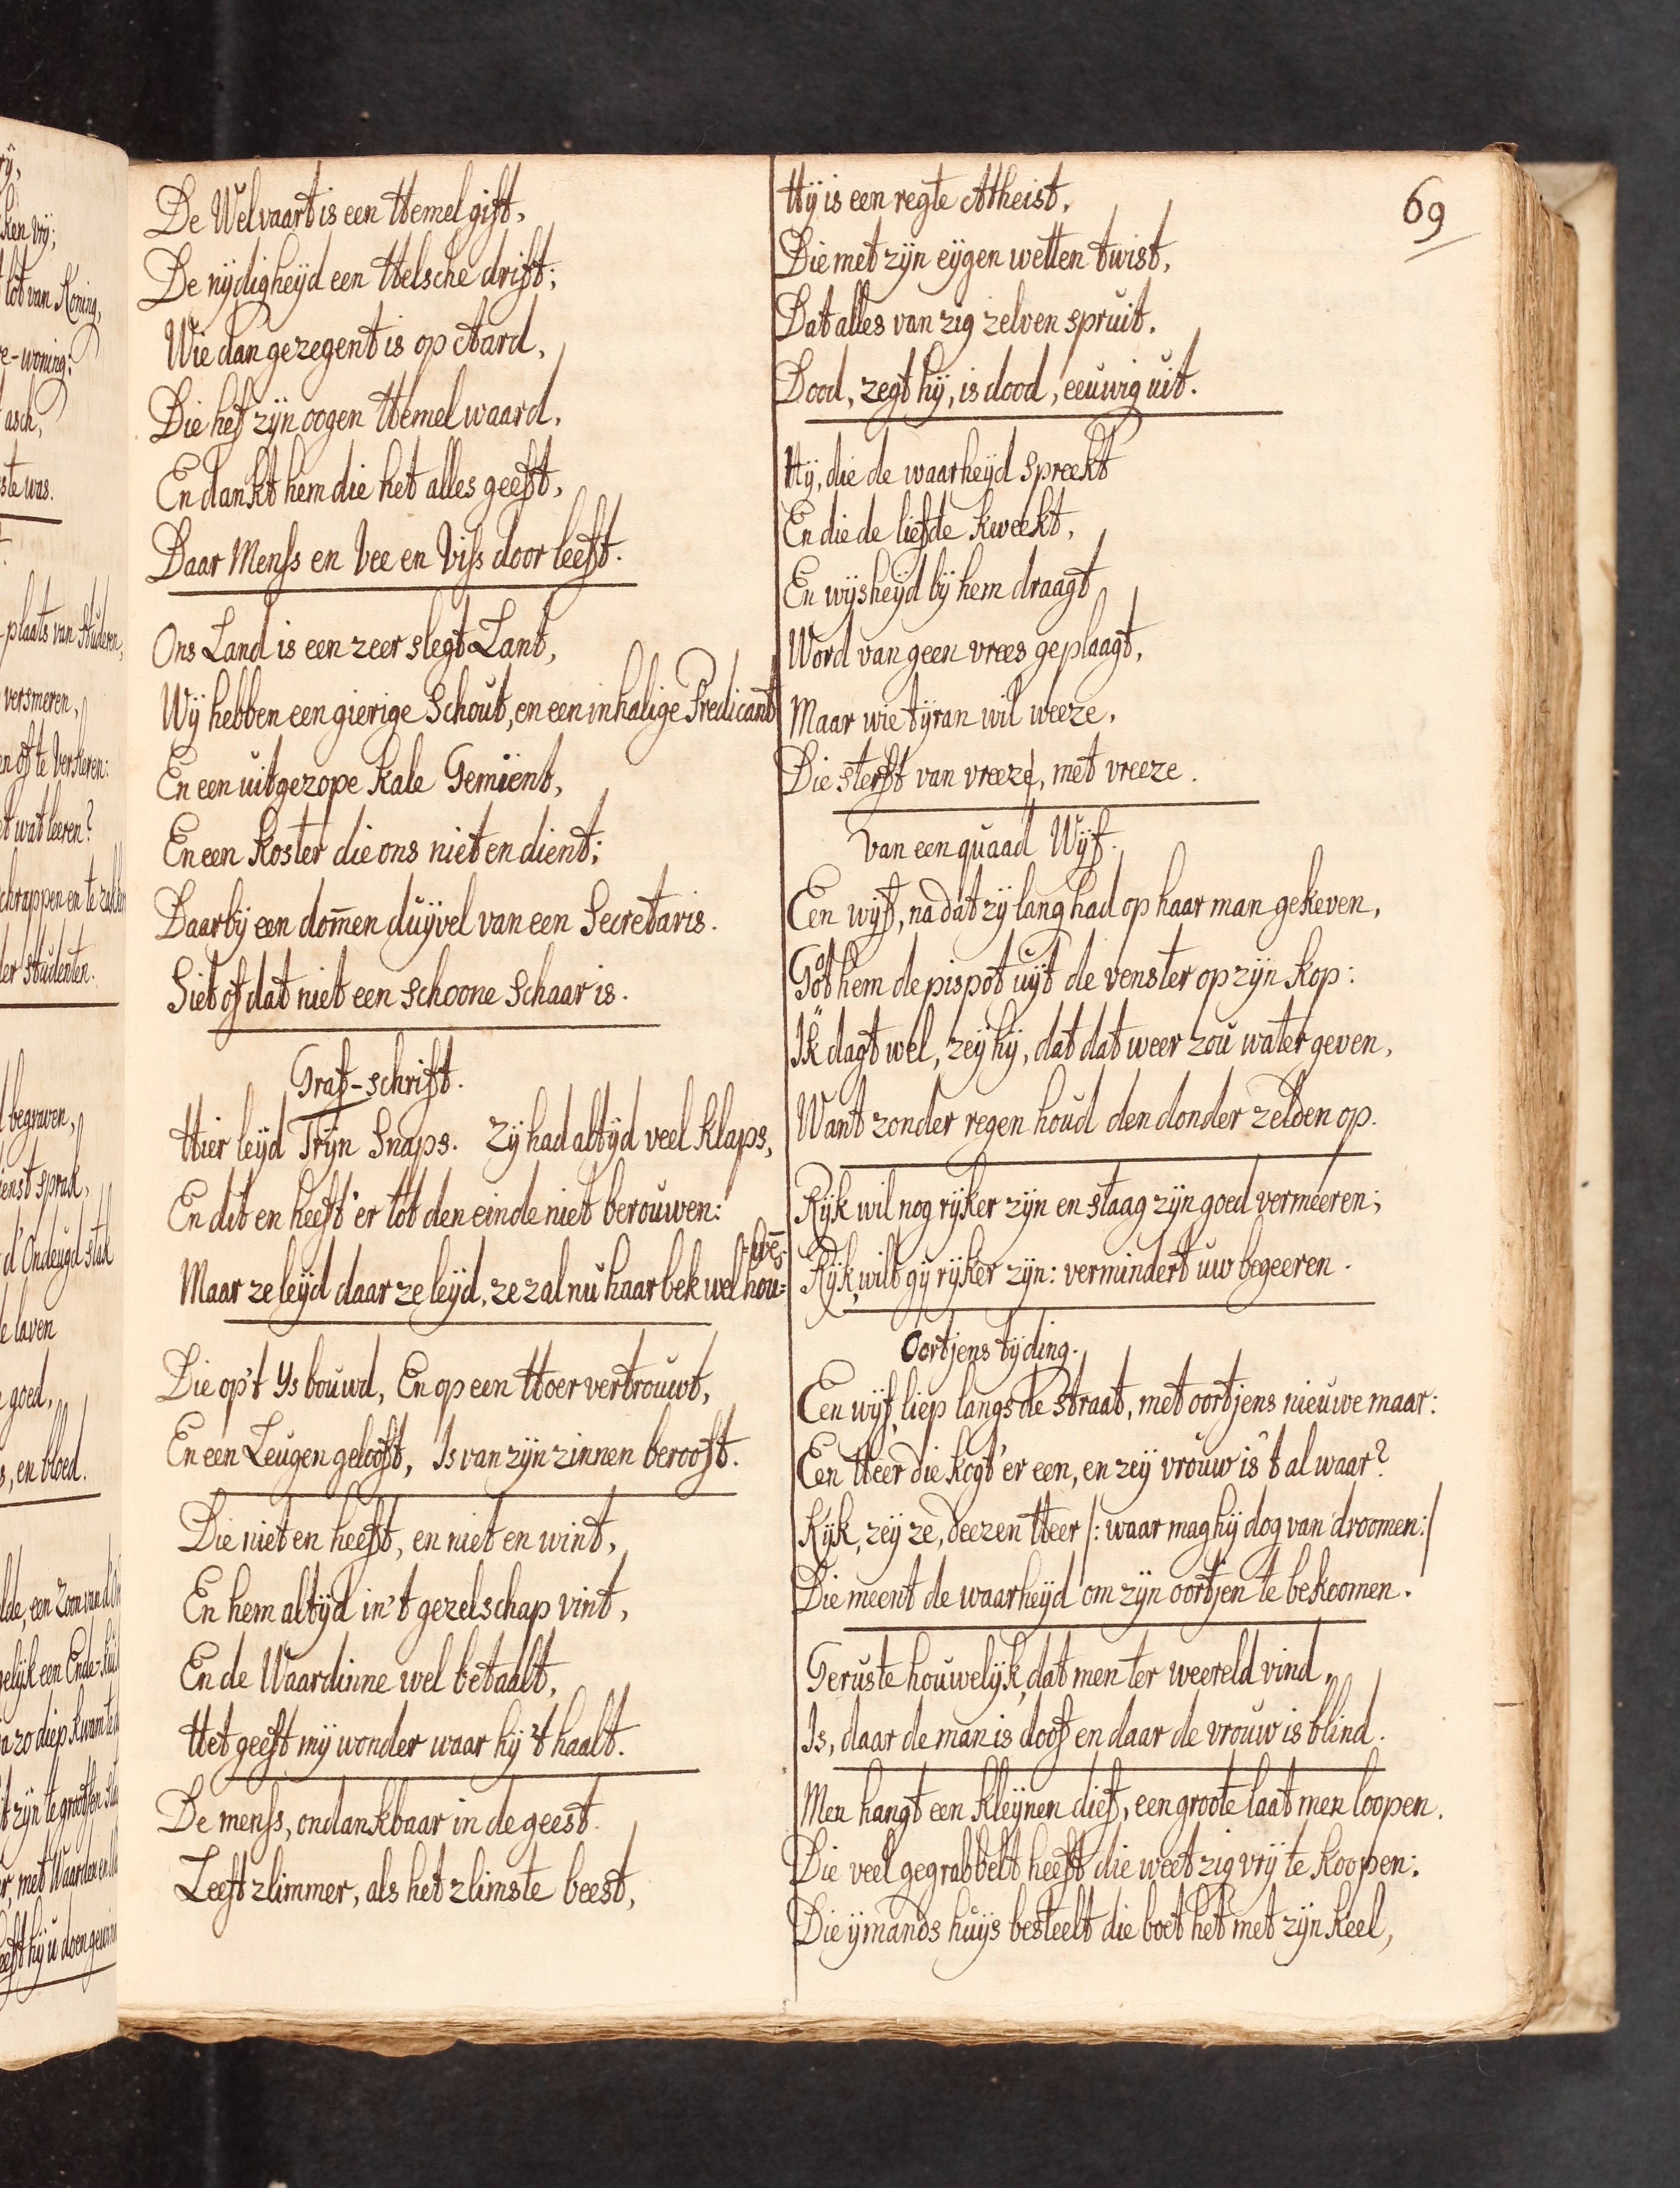 69
De Welvaart is een Hemel gift,
De nijdigheijd een Helsche drift;
Wie dan gezegent is op Aard,
Die hef zijn oogen Hemel waard,
En dankt hem die het alles geeft,
Daar Menss en Vee en Viss door leeft.
Ons Land is een zeer slegt Lant,
Wij hebben een gierige Schout, en een inhalige Predicant
En een uitgezope kale Gemient,
En een Koster die ons niet en dient;
Daar bij een dom̅en duijvel van een Secretaris.
Siet of dat niet een schoone Schaar is.
Graf-schrift.
Hier leijd Trijn Snaps. Zij had altijd veel Klaps,
En dit en heeft 'er tot den einde niet berouwen:
Maar ze leijd daar ze leijd, ze zal nu haar bek wel hou=
wē.
Die op 't Ys bouwd, En op een Hoer vertrouwt,
En een Leugen gelooft, Is van zijn zinnen berooft.
Die niet en heeft, en niet en wint,
En hem altijd in 't gezelschap vint,
En de Waardinne wel betaalt,
Het geeft mij wonder waar hij 't haalt.
De menss, ondankbaar in de geest
Leeft zlimmer, als het zlimste beest,
Hij is een regte Atheist,
Die met zijn eijgen wetten twist,
Dat alles van zig zelven spruit.
Dood, zegt hij, is dood, eeuwig uit.
Hij, die de waarheijd spreekt
En die de liefde kweekt,
En wijsheijd bij hem draagt
Word van geen vrees geplaagt,
Maar wie tijran wil weeze,
Die sterft van vreeze, met vreeze.
Van een quaad Wijf.
Een wijf, na dat zij lang had op haar man gekeven,
Gôt hem de pispot uijt de venster op zijn kop:
Ik dagt wel, zeij hij, dat dat weer zou water geven,
Want zonder regen houd den donder zelden op.
Rijk wil nog rijker zijn en staag zijn goed vermeeren;
Rijk, wilt gij rijker zijn: vermindert uw begeeren.
Oortjens tijding.
Een wijf, liep langs de straat, met oortjens nieuwe maar:
Een Heer die kogt 'er een, en zeij vrouw is 't al waar?
Kijk, zeij ze, deezen Heer /: waar mag hij dog van droomen:/
Die meent de waarheijd om zijn oortjen te bekoomen.
Geruste houwelijk, dat men ter weereld vind,
Is, daar de man is doof en daar de vrouw is blind.
Men hangt een kleijnen dief, een groote laat men loopen.
Die veel gegrabbelt heeft die weet zig vrij te koopen:
Die ijmands huijs besteelt die boet het met zijn keel,